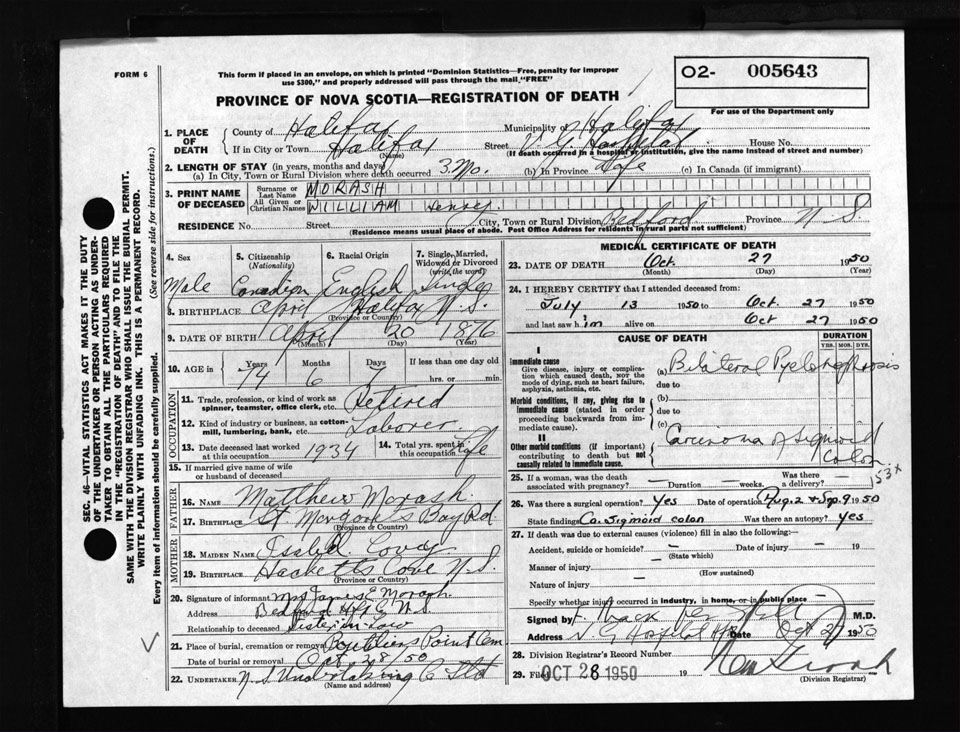 FORM 6
This form if placed in an envelope, on which is printed "Dominion Statistics—Free, penalty for improper
use $300," and properly addressed will pass through the mail "FREE"
O2- 005643
PROVINCE OF NOVA SCOTIA—REGISTRATION OF DEATH
For use of the Department only
1. PLACE OF DEATH
County of Halifax Municipality of Halifax
If in City or Town Halifax (Name) Street V. G. Hospital House No.
(If death occurred in a hospital or institution, give the name instead of street and number)
2. LENGTH OF STAY (in years, months and days)
(a) In City, Town or Rural Division where death occurred 3 Mo. (b) In Province Life (c) In Canada (if immigrant)
3. PRINT NAME OF DECEASED
Surname or Last Name MORASH
All Given or Christian Names WILLIAM Henry.
RESIDENCE No. Street City, Town or Rural Division Bedford Province N. S.
(Residence means usual place of abode. Post Office Address for residents in rural parts not sufficient)
4. Sex Male
5. Citizenship (Nationality) Canadian
6. Racial Origin English
7. Single, Married, Widowed or Divorced (write the word) Single
8. BIRTHPLACE Halifax N. S.
(Province or Country)
9. DATE OF BIRTH April (Month) 20 (Day) 1876 (Year)
10. AGE in Years 74 Months 6 Days If less than one day old
hrs. or min.
OCCUPATION
11. Trade, profession, or kind of work as spinner, teamster, office clerk, etc. Retired
12. Kind of industry or business, as cotton-mill, lumbering, bank, etc. Laborer
13. Date deceased last worked at this occupation 1934
14. Total yrs. spent in this occupation Life
15. If married give name of wife or husband of deceased
FATHER
16. NAME Matthew Morash
17. BIRTHPLACE St. Margaret's Bay Rd
(Province or Country)
MOTHER
18. MAIDEN NAME
19. BIRTHPLACE Hacketts Cove N. S.
(Province or Country)
20. Signature of informant Mrs James E Morash
Address Bedford Hfx Co N. S.
Relationship to deceased Sister in Law
21. Place of burial, cremation or removal Boutiliers Point Cem
Date of burial or removal Oct 28/50
22. UNDERTAKER N. S. Undertaking Co Ltd
(Name and address)
MEDICAL CERTIFICATE OF DEATH
23. DATE OF DEATH Oct. 27 1950
(Month) (Day) (Year)
24. I HEREBY CERTIFY that I attended deceased from:
July 13 1950 to Oct. 27 1950
and last saw him alive on Oct 27 1950
CAUSE OF DEATH
DURATION
YRS. MOS. DYS.
I
Immediate cause
Give disease, injury or complication which caused death, not the mode of dying, such as heart failure, asphyxia, asthenia, etc.
(a) Bilateral Pyelonephrosis
due to
Morbid conditions, if any, giving rise to immediate cause (stated in order proceeding backwards from immediate cause).
(b)
due to
(c)
II
Other morbid conditions (if important) contributing to death but not causally related to immediate cause.
Carcinoma of Sigmoid
Colon
153x
25. If a woman, was the death associated with pregnancy? — Duration — weeks. Was there a delivery? —
26. Was there a surgical operation? Yes Date of operation Aug. 2 & Sep. 9 1950
State findings Ca. Sigmoid colon Was there an autopsy? yes
27. If death was due to external causes (violence) fill in also the following:—
Accident, suicide or homicide? — Date of injury — 19
(State which)
Manner of injury —
(How sustained)
Nature of injury —
Specify whether injury occurred in industry, in home, or in public place
Signed by M.D.
Address V. G. Hospital Hfx Date Oct 27 1950
28. Division Registrar's Record Number
29. Filed OCT 28 1950 19
(Division Registrar)
SEC. 46—VITAL STATISTICS ACT MAKES IT THE DUTY
OF THE UNDERTAKER OR PERSON ACTING AS UNDER-
TAKER TO OBTAIN ALL THE PARTICULARS REQUIRED
IN THE "REGISTRATION OF DEATH" AND TO FILE THE
SAME WITH THE DIVISION REGISTRAR WHO SHALL ISSUE THE BURIAL PERMIT.
WRITE PLAINLY WITH UNFADING INK. THIS IS A PERMANENT RECORD.
Every item of information should be carefully supplied. (See reverse side for instructions.)